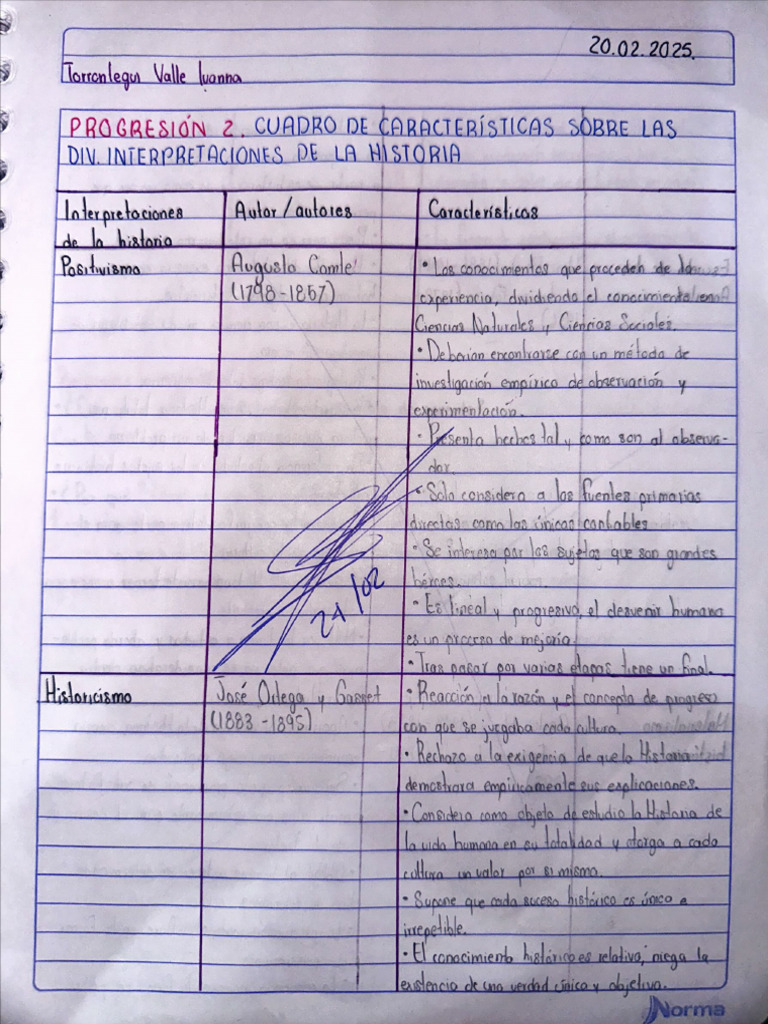 20.02.2025.
Torrontegui Valle Ivanna
PROGRESIÓN 2. CUADRO DE CARACTERÍSTICAS SOBRE LAS
DIV. INTERPRETACIONES DE LA HISTORIA
Interpretaciones
de la historia
Autor/autores
Características
Positivismo
Augusto Comte
(1798-1857)
• Los conocimientos que proceden de la
experiencia, dividiendo el conocimiento
Ciencias Naturales y Ciencias Sociales.
• Deberían encontrarse con un método de
investigación empírico de observación y
experimentación.
• Presenta hechos tal y como son al observa-
dor.
• Solo considera a las fuentes primarias
directas como las únicas contables
• Se interesa por los sujetos que son grandes
héroes.
• Es lineal y progresivo, el desvenir humano
es un proceso de mejoría.
• Tras pasar por varias etapas tiene un final.
21/02
Historicismo
José Ortega y Gasset
(1883-1895)
• Reacción a la razón y el concepto de progreso
con que se juzgaba cada cultura.
• Rechazo a la exigencia de que la Historia
demostrara empíricamente sus explicaciones.
• Considera como objeto de estudio la Historia de
la vida humana en su totalidad y otorga a cada
cultura un valor por si misma.
• Supone que cada suceso histórico es único e
irrepetible.
• El conocimiento histórico es relativo, niega la
existencia de una verdad única y objetiva.
Norma